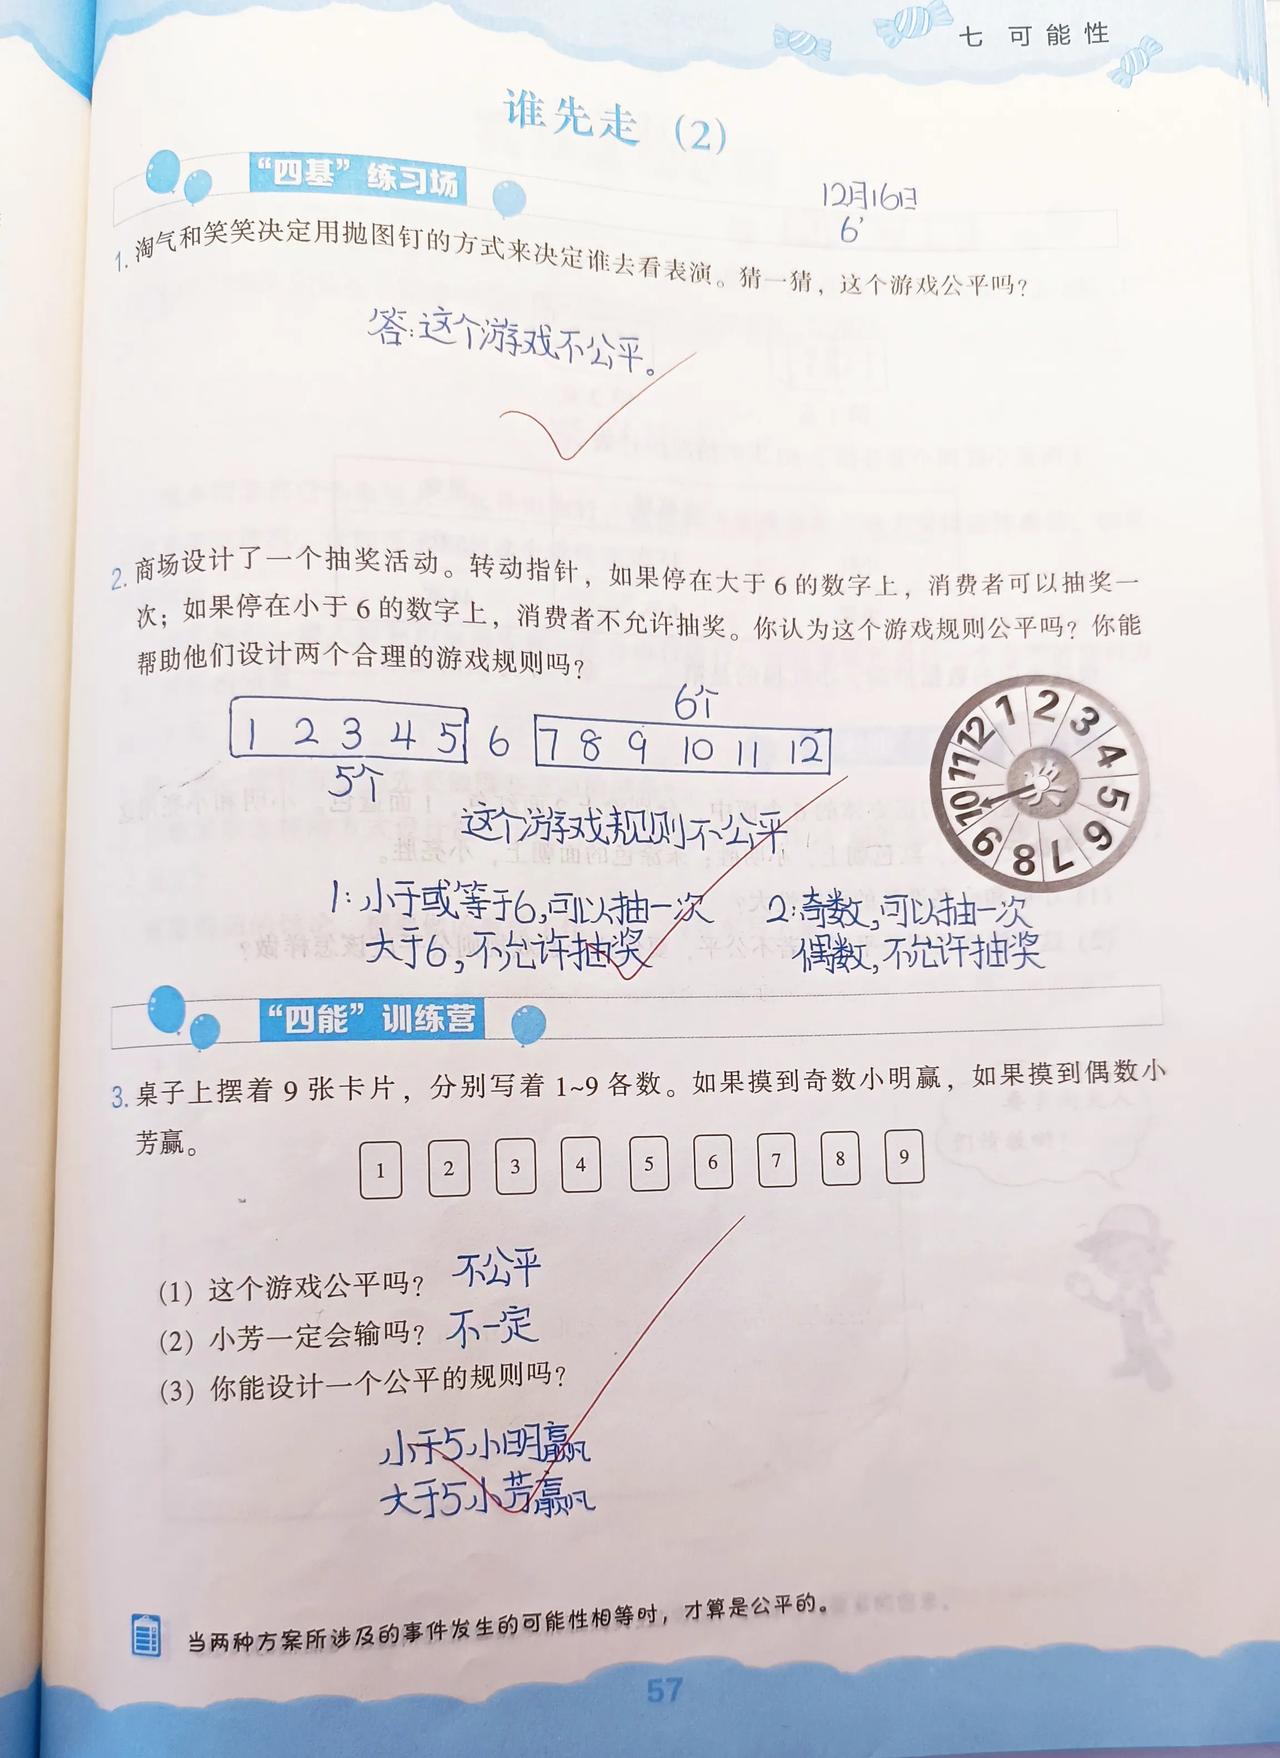 七 可能性
谁先走（2）
“四基”练习场
12月16日
6'
1. 淘气和笑笑决定用抛图钉的方式来决定谁去看表演。猜一猜，这个游戏公平吗？
答：这个游戏不公平。
2. 商场设计了一个抽奖活动。转动指针，如果停在大于6的数字上，消费者可以抽奖一
次；如果停在小于6的数字上，消费者不允许抽奖。你认为这个游戏规则公平吗？你能
帮助他们设计两个合理的游戏规则吗？
6个
1 2 3 4 5 6 7 8 9 10 11 12
5个
1 2 3 4 5 6 7 8 9 10 11 12
奖
这个游戏规则不公平
1：小于或等于6，可以抽一次
大于6，不允许抽奖
2：奇数，可以抽一次
偶数，不允许抽奖
“四能”训练营
3. 桌子上摆着9张卡片，分别写着1~9各数。如果摸到奇数小明赢，如果摸到偶数小
芳赢。
1 2 3 4 5 6 7 8 9
（1）这个游戏公平吗？ 不公平
（2）小芳一定会输吗？ 不一定
（3）你能设计一个公平的规则吗？
小于5小明赢
大于5小芳赢
当两种方案所涉及的事件发生的可能性相等时，才算是公平的。
57